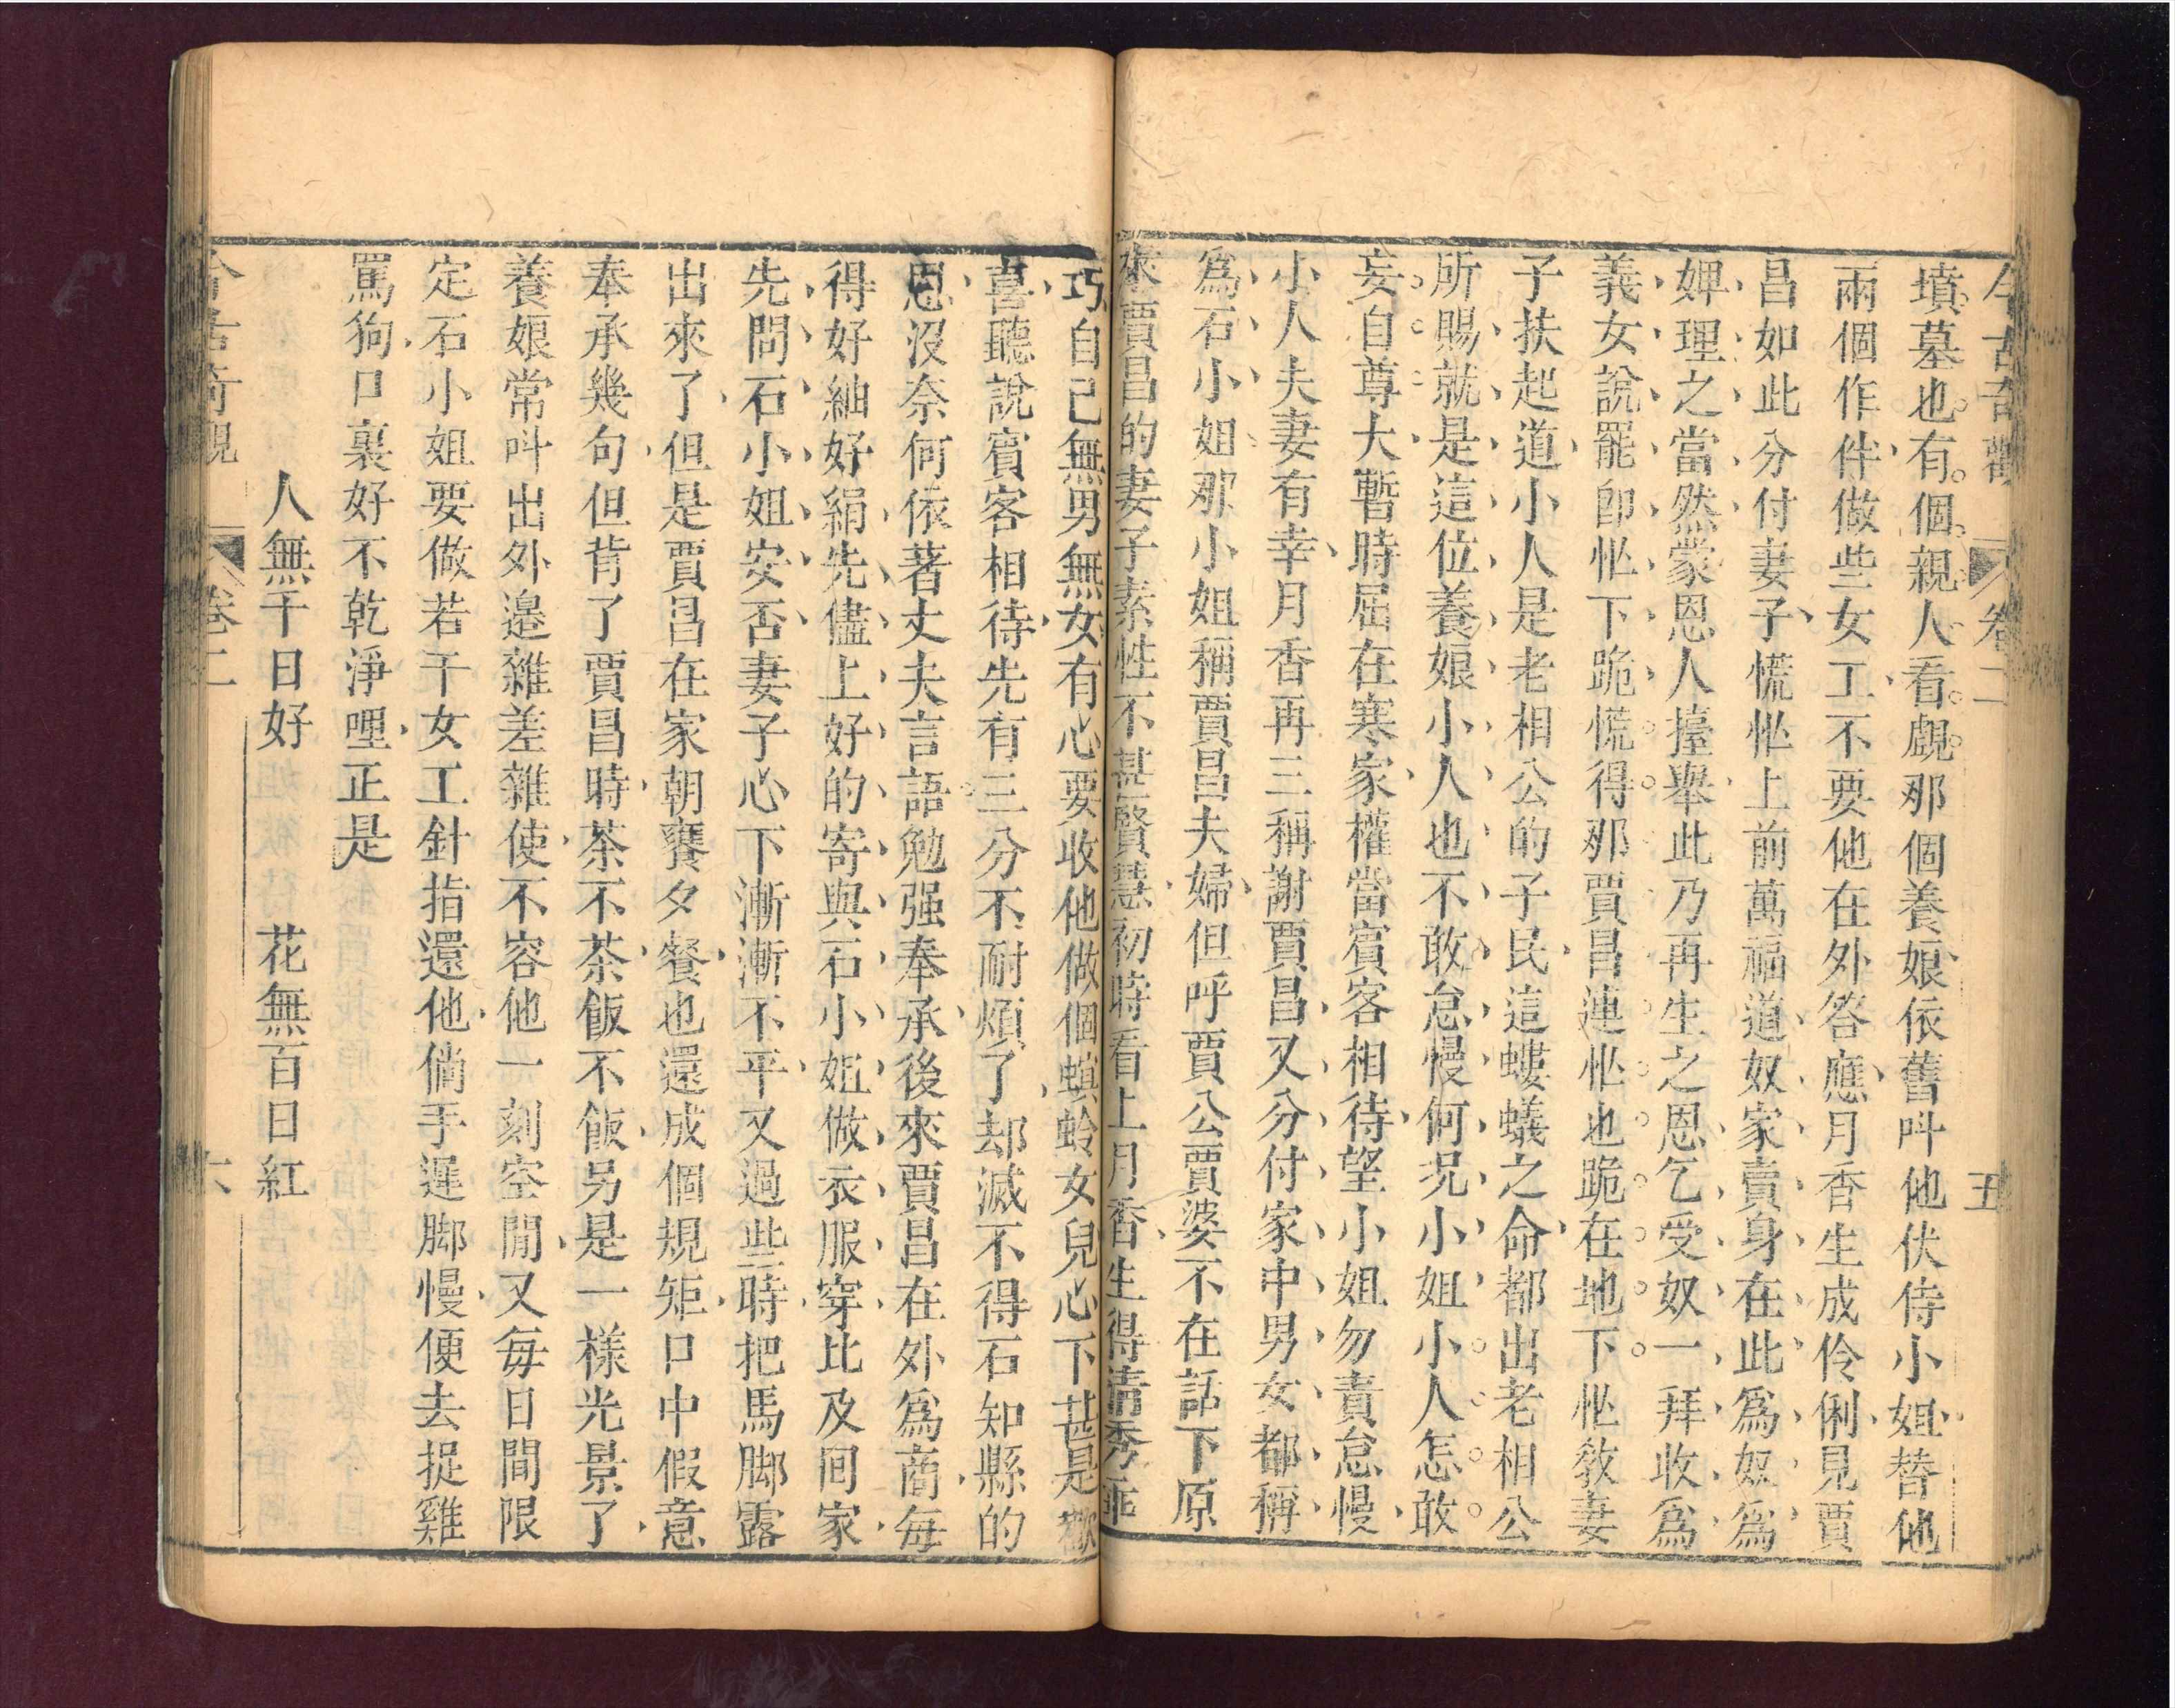 今古奇觀 卷二 五
墳墓也有個親人看覷那個養娘依舊呌他伏侍小姐替他
兩個作伴做些女工不要他在外答應月香生成伶俐見賈
昌如此分付妻子慌忙上前萬福道奴家賣身在此爲奴爲
婢理之當然蒙恩人擡舉此乃再生之恩乞受奴一拜收爲
義女說罷卽忙下跪慌得那賈昌連忙也跪在地下忙敎妻
子扶起道小人是老相公的子民這螻蟻之命都出老相公
所賜就是這位養娘小人也不敢怠慢何况小姐小人怎敢
妄自尊大暫時屈在寒家權當賓客相待望小姐勿責怠慢
小人夫妻有幸月香再三稱謝賈昌又分付家中男女都稱
爲石小姐那小姐稱賈昌夫婦但呼賈公賈婆不在話下原
來賈昌的妻子素性不甚賢慧初時看上月香生得清秀乖
巧自己無男無女有心要收他做個螟蛉女兒心下甚是歡
喜聽說賓客相待先有三分不耐煩了却滅不得石知縣的
恩沒奈何依著丈夫言語勉强奉承後來賈昌在外爲商每
得好紬好絹先儘上好的寄與石小姐做衣服穿比及囘家
先問石小姐安否妻子心下漸漸不平又過些時把馬脚露
出來了但是賈昌在家朝饔夕餐也還成個規矩口中假意
奉承幾句但背了賈昌時茶不茶飯不飯另是一樣光景了
養娘常呌出外邊雜差雜使不容他一刻空閒又每日間限
定石小姐要做若干女工針指還他倘手遲脚慢便去捉雞
罵狗口裏好不乾淨哩正是
人無千日好 花無百日紅
今古奇觀 卷二 六